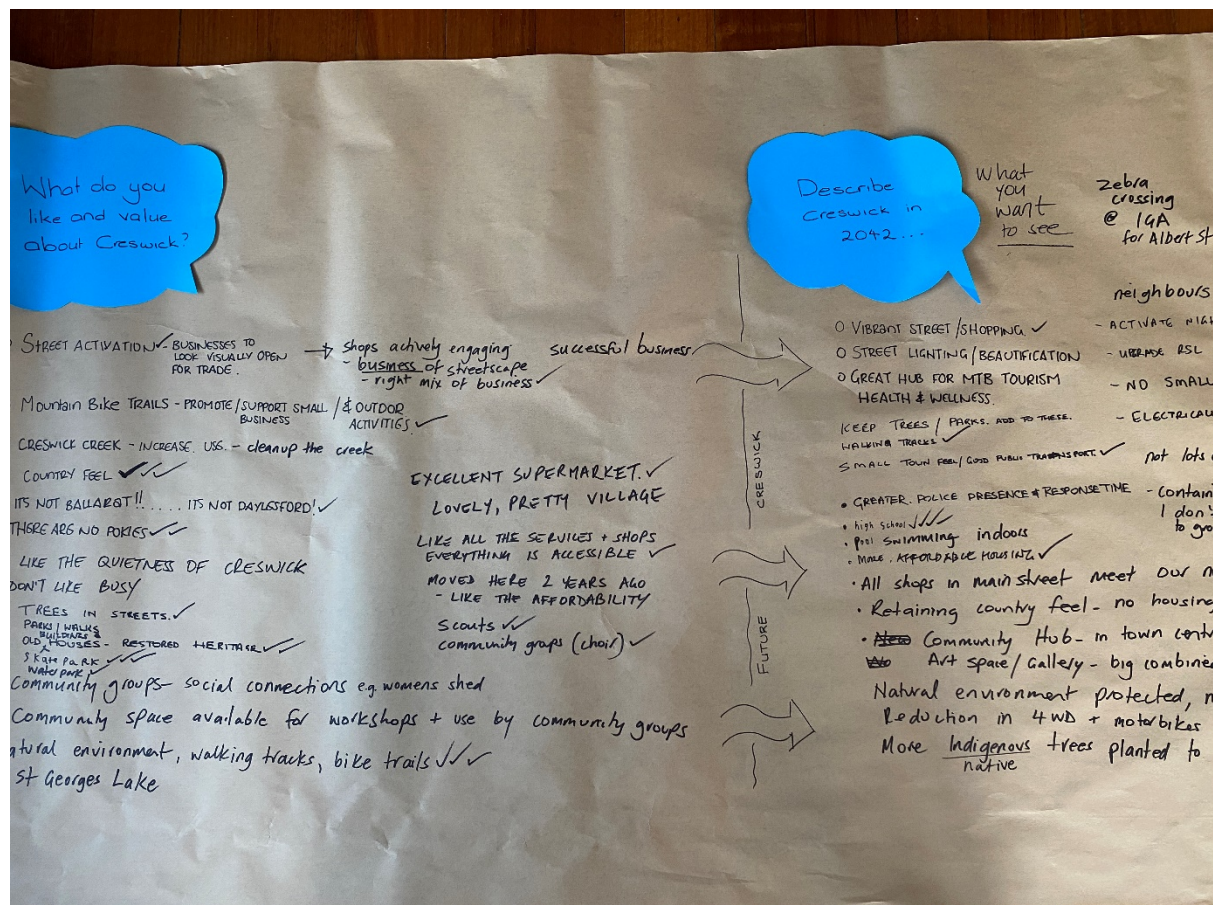 What do you
like and value
about Creswick?
STREET ACTIVATION ✓ - BUSINESSES TO
LOOK VISUALLY OPEN
FOR TRADE.
→ shops actively engaging
- business of streetscape
- right mix of business ✓
successful business
Mountain Bike TRAILS - PROMOTE/SUPPORT SMALL / & OUTDOOR
BUSINESS ACTIVITIES ✓
CRESWICK CREEK - INCREASE USE. - cleanup the creek
COUNTRY FEEL ✓✓✓
ITS NOT BALLARAT!! ..... ITS NOT DAYLESFORD! ✓
THERE ARE NO POKIES ✓✓
LIKE THE QUIETNESS OF CRESWICK
DON'T LIKE BUSY
TREES IN STREETS. ✓
PARKS/WALKS
BUILDINGS &
OLD HOUSES - RESTORED HERITAGE ✓✓
Skate PARK ✓✓✓
water park ✓
Community groups - social connections e.g. womens shed
Community space available for workshops + use by community groups
atural environment, walking tracks, bike trails ✓✓✓
St Georges Lake
EXCELLENT SUPERMARKET. ✓
LOVELY, PRETTY VILLAGE
LIKE ALL THE SERVICES + SHOPS
EVERYTHING IS ACCESSIBLE ✓
MOVED HERE 2 YEARS AGO
- LIKE THE AFFORDABILITY
Scouts ✓✓
community groups (choir) ✓
CRESWICK
FUTURE
Describe
Creswick in
2042...
What
you
want
to see
Zebra
crossing
@ IGA
for Albert St
neighbours
O VIBRANT STREET/SHOPPING ✓
O STREET LIGHTING/BEAUTIFICATION
O GREAT HUB FOR MTB TOURISM
HEALTH & WELLNESS.
KEEP TREES / PARKS. ADD TO THESE.
WALKING TRACKS ✓
SMALL TOWN FEEL/GOOD PUBLIC TRANSPORT. ✓
• GREATER POLICE PRESENCE & RESPONSE TIME
• high school ✓✓✓
• pool SWIMMING indoors
• MORE AFFORDABLE HOUSING ✓
• All shops in main street meet our n
• Retaining country feel - no housing
• New Community Hub - in town centr
Art space/Gallery - big combine
Natural environment protected, n
Reduction in 4WD + motorbikes
More Indigenous trees planted to
native
- ACTIVATE NIG
- UPGRADE RSL
- NO SMALL
- ELECTRICAL
not lots
- contain
I don't
to gro